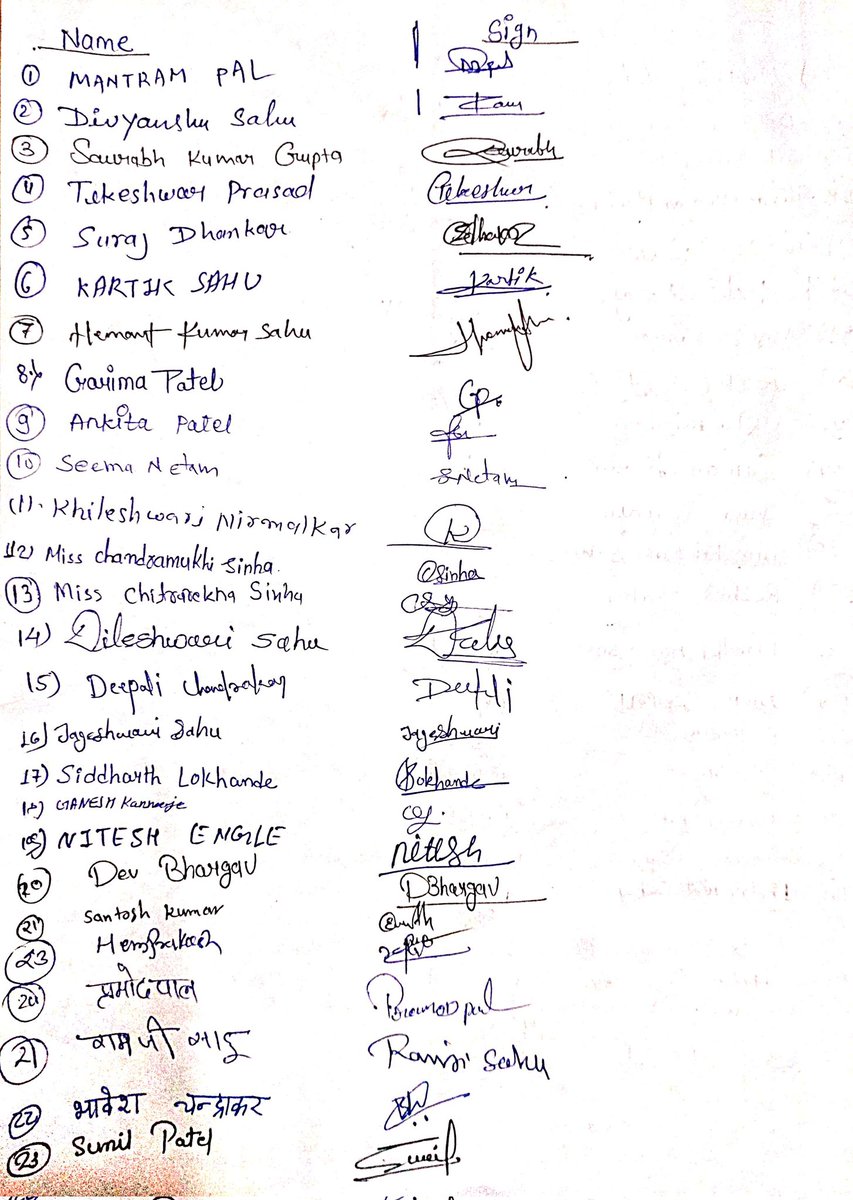 Name Sign
① MANTRAM PAL
② Divyanshu Sahu
③ Saurabh Kumar Gupta Saurabh
④ Tekeshwar Prasad Tekeshwar
⑤ Suraj Dhankar
⑥ KARTIK SAHU Kartik
⑦ Hemant Kumar Sahu
8 Garima Patel GP.
⑨ Ankita Patel
⑩ Seema Netam SNetam
11. Khileshwari Nirmalkar
12) Miss Chandramukhi Sinha. Sinha
⑬ Miss Chitrarekha Sinha
14) Dileshwari Sahu
15) Deepali Chandrakar Deepali
16) Jageshwari Sahu Jageshwari
17) Siddharth Lokhande Lokhande
18) GANESH Kannauje
NITESH ENGLE Nitesh
⑳ Dev Bhargav DBhargav
㉑ Santosh Kumar
㉓ Hemprakash
प्रमोद पाल Pramod pal
㉑ रामजी साहू Ramji Sahu
㉒ भावेश चन्द्राकर
㉓ Sunil Patel